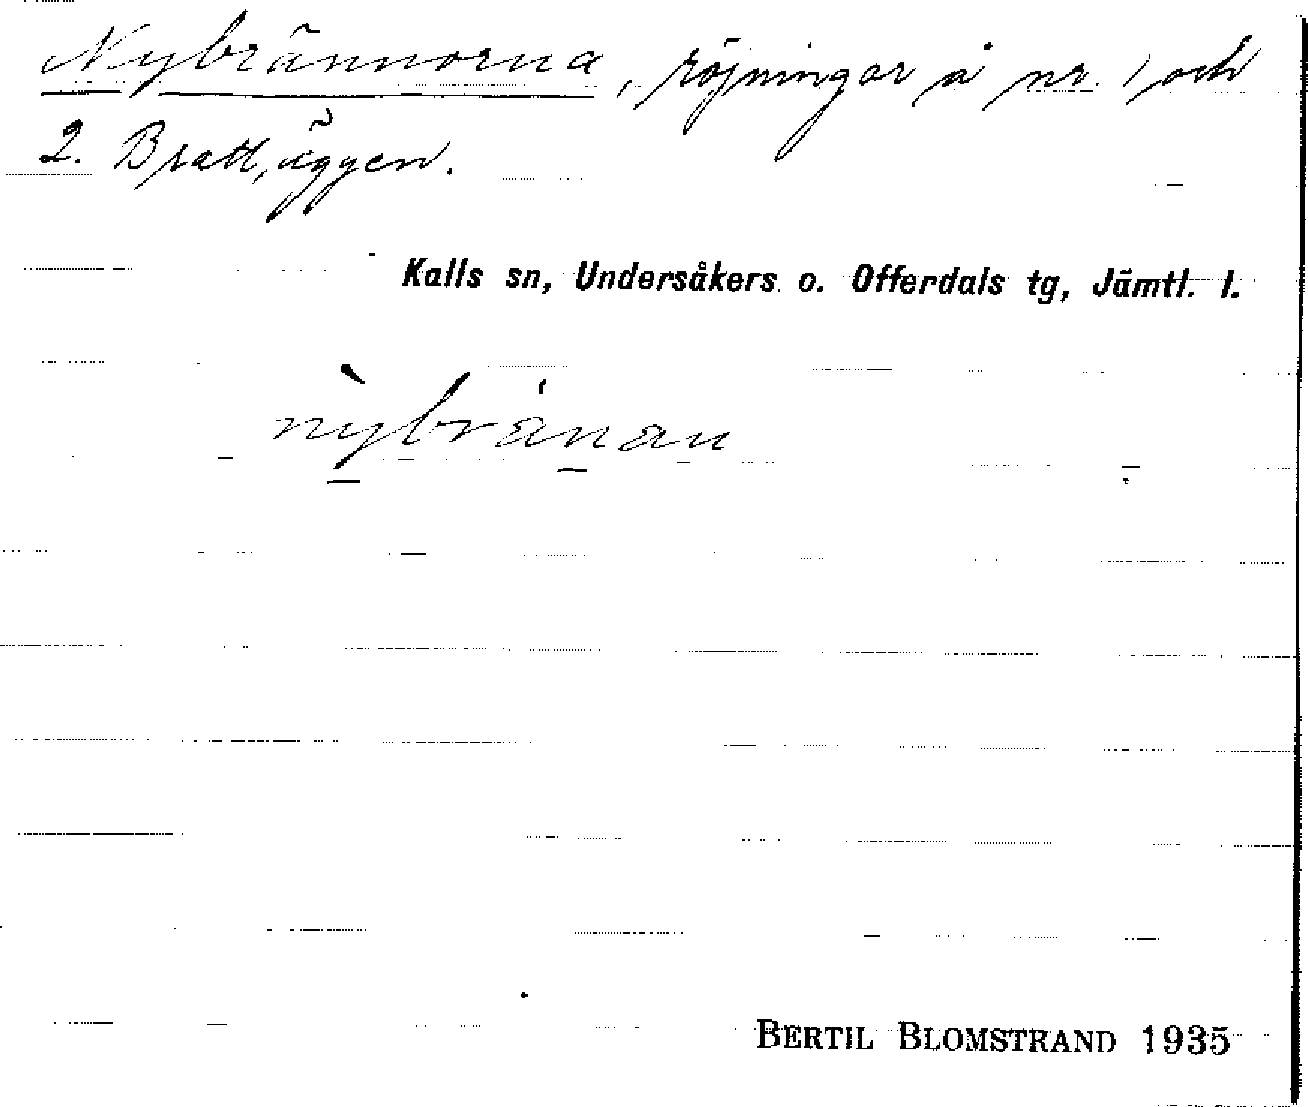 Nybrännorna, röjningar å nr. 1 och
2. Brattäggen.
Kalls sn, Undersåkers o. Offerdals tg, Jämtl. l.
nỳbränan
BERTIL BLOMSTRAND 1935